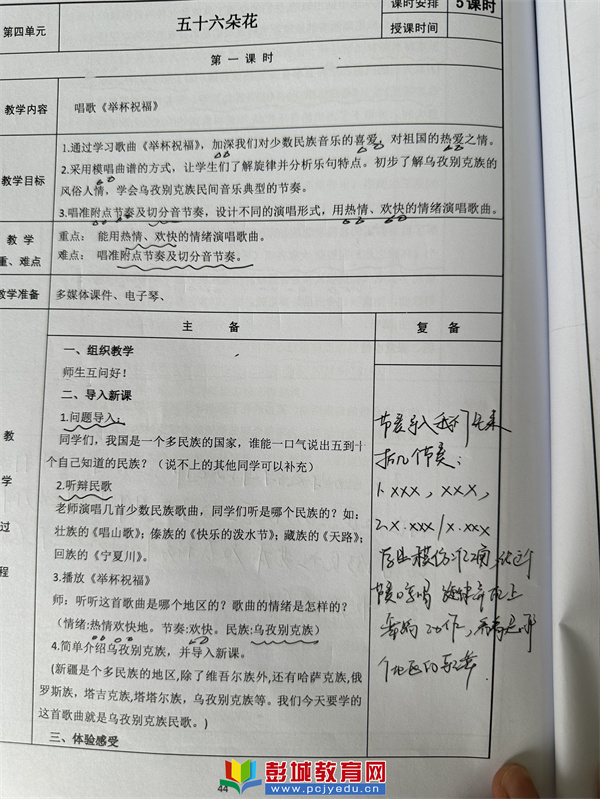 第四单元
五十六朵花
课时安排
5课时
授课时间
第一课时
教学内容
唱歌《举杯祝福》
教学目标
1.通过学习歌曲《举杯祝福》，加深我们对少数民族音乐的喜爱，对祖国的热爱之情。
2.采用模唱曲谱的方式，让学生们了解旋律并分析乐句特点。初步了解乌孜别克族的
风俗人情，学会乌孜别克族民间音乐典型的节奏。
3.唱准附点节奏及切分音节奏，设计不同的演唱形式，用热情、欢快的情绪演唱歌曲。
教 学
重、难点
重点： 能用热情、欢快的情绪演唱歌曲。
难点： 唱准附点节奏及切分音节奏。
教学准备
多媒体课件、电子琴、
主 备
复 备
教
学
过
程
一、组织教学
师生互问好！
二、导入新课
1.问题导入：
同学们，我国是一个多民族的国家，谁能一口气说出五到十
个自己知道的民族？（说不上的其他同学可以补充）
2.听辩民歌
老师演唱几首少数民族歌曲，同学们听是哪个民族的？如：
壮族的《唱山歌》；傣族的《快乐的泼水节》；藏族的《天路》；
回族的《宁夏川》。
3.播放《举杯祝福》
师：听听这首歌曲是哪个地区的？歌曲的情绪是怎样的？
（情绪:热情欢快地。节奏:欢快。民族:乌孜别克族）
4.简单介绍乌孜别克族，并导入新课。
(新疆是个多民族的地区,除了维吾尔族外,还有哈萨克族,俄
罗斯族，塔吉克族,塔塔尔族，乌孜别克族等。我们今天要学的
这首歌曲就是乌孜别克族民歌。)
三、体验感受
节奏导入 我们先来
拍几个节奏：
1. xxx，xxx，
2. x.xxx/x.xxx
学生模仿
节奏 哼唱 旋律 配上
舞蹈动作，看看是哪
个地区的歌舞.
44
彭城教育网
www.pcjyedu.cn